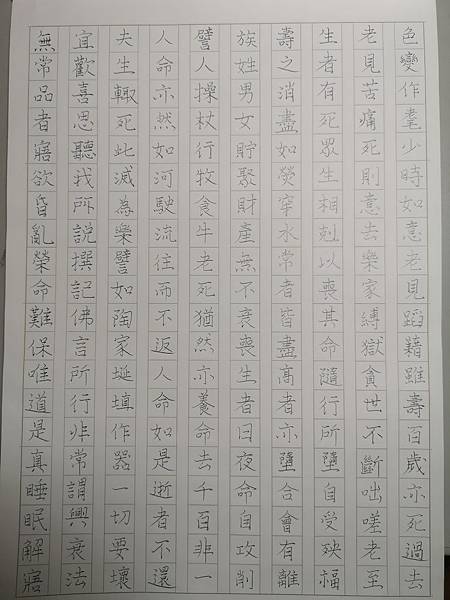 無常品者寤欲昏亂榮命難保唯道是真睡眠解寤
宜歡喜思聽我所說撰記佛言所行非常謂興衰法
夫生輙死此滅為樂譬如陶家埏填作器一切要壞
人命亦然如河駛流往而不返人命如是逝者不還
譬人操杖行牧食牛老死猶然亦養命去千百非一
族姓男女貯聚財產無不衰喪生者日夜命自攻削
壽之消盡如熒穽水常者皆盡高者亦墮合會有離
生者有死眾生相剋以喪其命隨行所墮自受殃福
老見苦痛死則意去樂家縛獄貪世不斷咄嗟老至
色變作耄少時如意老見蹈藉雖壽百歲亦死過去